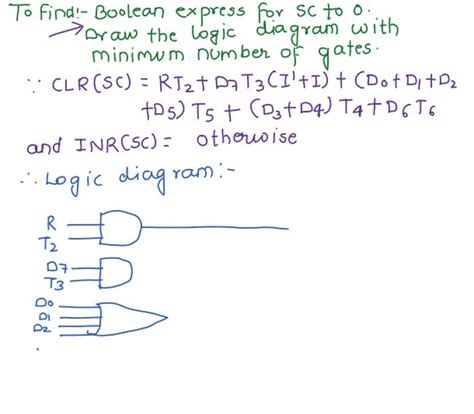 To Find:- Boolean express for SC to 0.
Draw the logic diagram with
minimum number of gates.
∵ CLR(SC) = RT2 + D7T3(I'+I) + (D0+D1+D2
+D5) T5 + (D3+D4) T4 + D6T6
and INR(SC) = otherwise
∴ Logic diagram:-
R
T2
D7
T3
D0
D1
D2